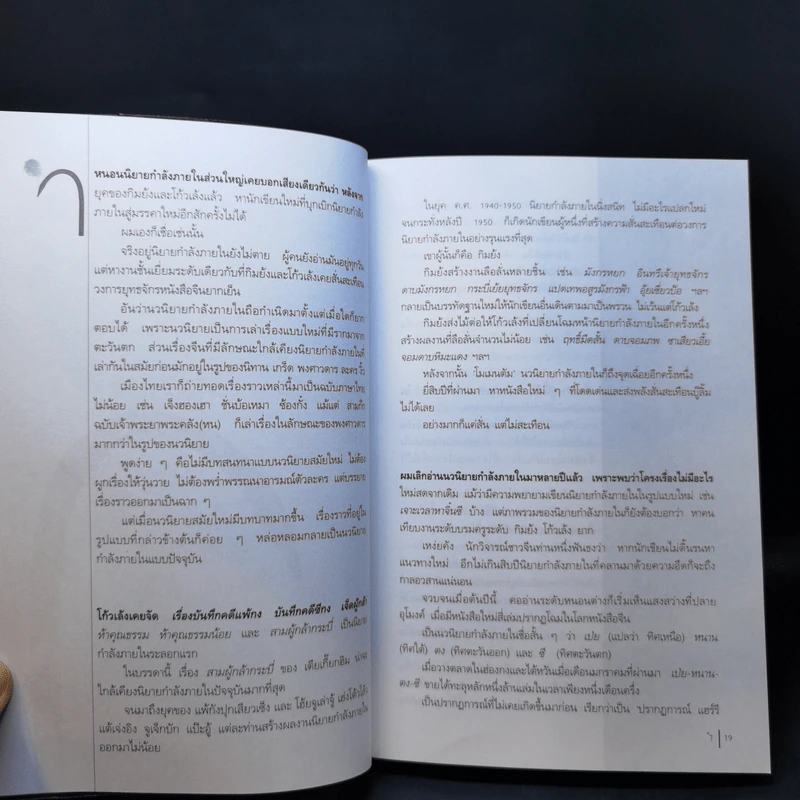 ำ
หนอนนิยายกำลังภายในส่วนใหญ่เคยบอกเสียงเดียวกันว่า หลังจาก
ยุคของกิมย้งและโก้วเล้งแล้ว หานักเขียนใหม่ที่บุกเบิกนิยายกำลัง
ภายในสู่มรรคาใหม่อีกสักครั้งไม่ได้
ผมเองก็เชื่อเช่นนั้น
จริงอยู่นิยายกำลังภายในยังไม่ตาย ผู้คนยังอ่านมันอยู่ทุกวัน
แต่หางานชั้นเยี่ยมระดับเดียวกับที่กิมย้งและโก้วเล้งเคยสั่นสะเทือน
วงการยุทธจักรหนังสือจีนยากเย็น
อันว่านวนิยายกำลังภายในถือกำเนิดมาตั้งแต่เมื่อใดก็ยาก
ตอบได้ เพราะนวนิยายเป็นการเล่าเรื่องแบบใหม่ที่มีรากมาจาก
ตะวันตก ส่วนเรื่องจีนที่มีลักษณะใกล้เคียงนิยายกำลังภายในที่
เล่ากันในสมัยก่อนมักอยู่ในรูปของนิทาน เกร็ด พงศาวดาร ละคร งิ้ว
เมืองไทยเราก็ถ่ายทอดเรื่องราวเหล่านี้มาเป็นฉบับภาษาไทย
ไม่น้อย เช่น เจ็งฮองเฮา ชั่นบ้อเหมา ซ้องกั๋ง แม้แต่ สามก๊ก
ฉบับเจ้าพระยาพระคลัง(หน) ก็เล่าเรื่องในลักษณะของพงศาวดาร
มากกว่าในรูปของนวนิยาย
พูดง่าย ๆ คือไม่มีบทสนทนาแบบนวนิยายสมัยใหม่ ไม่ต้อง
ผูกเรื่องให้วุ่นวาย ไม่ต้องพร่ำพรรณนาอารมณ์ตัวละคร แต่บรรยาย
เรื่องราวออกมาเป็นฉาก ๆ
แต่เมื่อนวนิยายสมัยใหม่มีบทบาทมากขึ้น เรื่องราวที่อยู่ใน
รูปแบบที่กล่าวข้างต้นก็ค่อย ๆ หล่อหลอมกลายเป็นนวนิยาย
กำลังภายในแบบปัจจุบัน
โก้วเล้งเคยจัด เรื่องบันทึกคดีแพ้กง บันทึกคดีซีกง เจ็ดผู้กล้า
ห้าคุณธรรม ห้าคุณธรรมน้อย และ สามผู้กล้ากระบี่ เป็นนิยาย
กำลังภายในระลอกแรก
ในบรรดานี้ เรื่อง สามผู้กล้ากระบี่ ของ เตียเกี๊ยกฮิม น่าจะ
ใกล้เคียงนิยายกำลังภายในปัจจุบันมากที่สุด
จนมาถึงยุคของ แพ้กังปุกเสียวเซ็ง และ โอ้ยจูเล่าจู้ เฮ่งโต้วโล้ว
แต้เจ่งอิง จูเจ็กบัก แป๊ะอู้ แต่ละท่านสร้างผลงานนิยายกำลังภายใน
ออกมาไม่น้อย
ในยุค ค.ศ. 1940-1950 นิยายกำลังภายในนิ่งสนิท ไม่มีอะไรแปลกใหม่
จนกระทั่งหลังปี 1950 ก็เกิดนักเขียนผู้หนึ่งที่สร้างความสั่นสะเทือนต่อวงการ
นิยายกำลังภายในอย่างรุนแรงที่สุด
เขาผู้นั้นก็คือ กิมย้ง
กิมย้งสร้างงานลือลั่นหลายชิ้น เช่น มังกรหยก อินทรีเจ้ายุทธจักร
ดาบมังกรหยก กระบี่เย้ยยุทธจักร แปดเทพอสูรมังกรฟ้า อุ้ยเซี่ยวป้อ ฯลฯ
กลายเป็นบรรทัดฐานใหม่ให้นักเขียนอื่นเดินตามมาเป็นพรวน ไม่เว้นแต่โก้วเล้ง
กิมย้งส่งไม้ต่อให้โก้วเล้งที่เปลี่ยนโฉมหน้านิยายกำลังภายในอีกครั้งหนึ่ง
สร้างผลงานที่ลือลั่นจำนวนไม่น้อย เช่น ฤทธิ์มีดสั้น ดาบจอมภพ ชาเสียวเอี้ย
จอมดาบหิมะแดง ฯลฯ
หลังจากนั้น 'โมเมนตัม' นวนิยายกำลังภายในก็ถึงจุดเฉื่อยอีกครั้งหนึ่ง
ยี่สิบปีที่ผ่านมา หาหนังสือใหม่ ๆ ที่โดดเด่นและส่งพลังสั่นสะเทือนบู๊ลิ้ม
ไม่ได้เลย
อย่างมากก็แค่สั่น แต่ไม่สะเทือน
ผมเลิกอ่านนวนิยายกำลังภายในมาหลายปีแล้ว เพราะพบว่าโครงเรื่องไม่มีอะไร
ใหม่สดจากเดิม แม้ว่ามีความพยายามเขียนนิยายกำลังภายในในรูปแบบใหม่ เช่น
เจาะเวลาหาจิ๋นซี บ้าง แต่ภาพรวมของนิยายกำลังภายในก็ยังต้องบอกว่า หาคน
เทียบงานระดับบรมครูระดับ กิมย้ง โก้วเล้ง ยาก
เหง่ยคัง นักวิจารณ์ชาวจีนท่านหนึ่งฟันธงว่า หากนักเขียนไม่ดิ้นรนหา
แนวทางใหม่ อีกไม่เกินสิบปีนิยายกำลังภายในที่คลานมาด้วยความอืดก็จะถึง
กาลอวสานแน่นอน
จวบจนเมื่อต้นปีนี้ คออ่านระดับหนอนต่างก็เริ่มเห็นแสงสว่างที่ปลาย
อุโมงค์ เมื่อมีหนังสือใหม่สี่เล่มปรากฏโฉมในโลกหนังสือจีน
เป็นนวนิยายกำลังภายในชื่อสั้น ๆ ว่า เปย (แปลว่า ทิศเหนือ) หนาน
(ทิศใต้) ตง (ทิศตะวันออก) และ ซี (ทิศตะวันตก)
เมื่อวางตลาดในฮ่องกงและไต้หวันเมื่อเดือนมกราคมที่ผ่านมา เปย-หนาน-
ตง-ซี ขายได้ทะลุหลักหนึ่งล้านเล่มในเวลาเพียงหนึ่งเดือนครึ่ง
เป็นปรากฏการณ์ที่ไม่เคยเกิดขึ้นมาก่อน เรียกว่าเป็น 'ปรากฏการณ์ แฮร์รี
ำ | 19